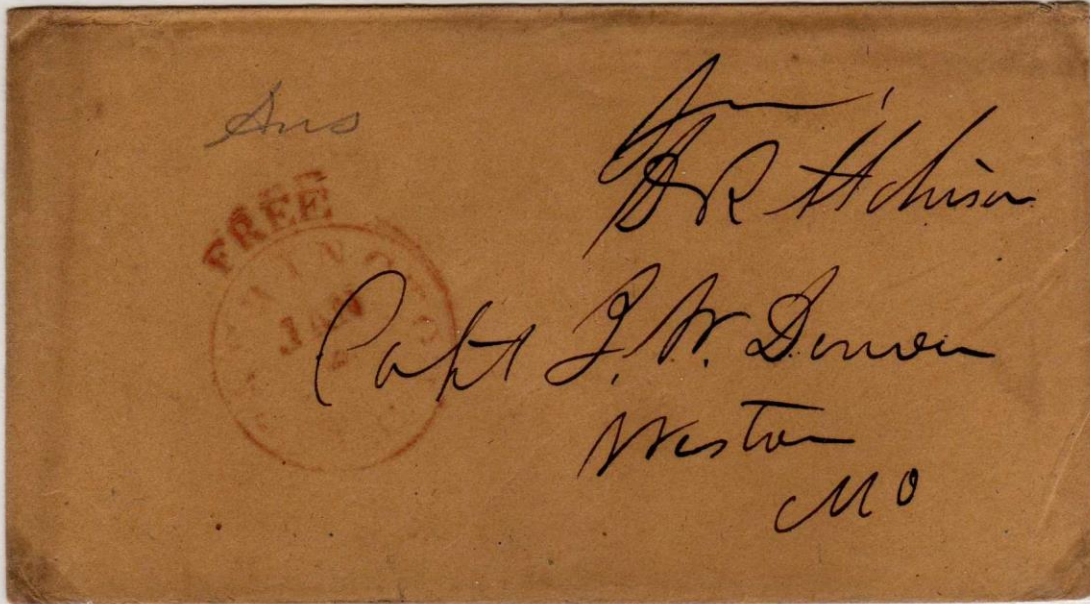 Ans
D R Atchison
FREE
JAN
Capt J. W. Denver
Weston
MO